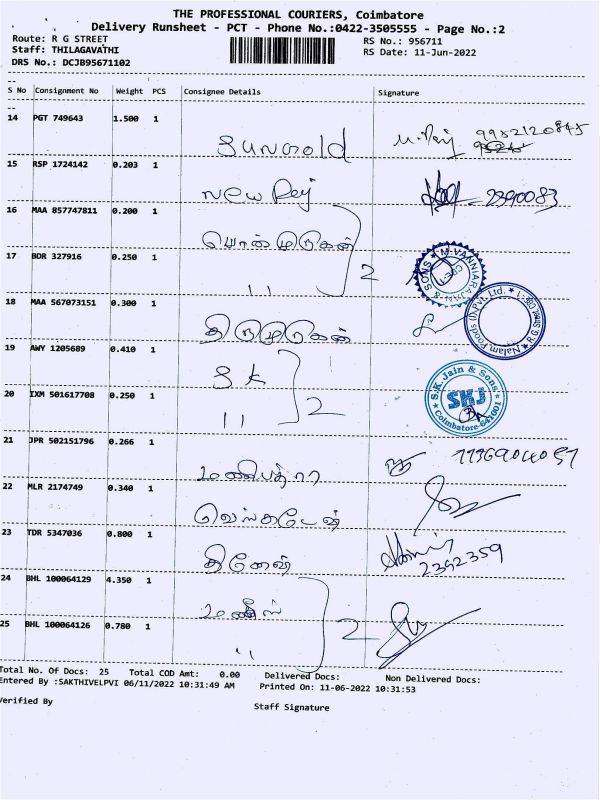 THE PROFESSIONAL COURIERS, Coimbatore
Delivery Runsheet - PCT - Phone No.:0422-3505555 - Page No.:2
Route: R G STREET
RS No.: 956711
Staff: THILAGAVATHI
RS Date: 11-Jun-2022
DRS No.: DCJB95671102
S No Consignment No Weight PCS Consignee Details Signature
14 PGT 749643 1.500 1
Sungold
9952120845
15 RSP 1724142 0.203 1
New Raj
2390083
16 MAA 857747811 0.200 1
பொன்முருகன்
17 BDR 327916 0.250 1
" 2
M. VANNIARAJAN & SONS
18 MAA 567073151 0.300 1
திருமுருகன்
Nalam Foods (I) Pvt. Ltd. * R G Street, CBE-1 *
19 AWY 1205689 0.410 1
S K
20 IXM 501617708 0.250 1
" 2
S.K. Jain & Sons
SKJ
* Coimbatore-641001 *
21 JPR 502151796 0.266 1
மணிபத்ரா
22 MLR 2174749 0.340 1
23 TDR 5347036 0.800 1
2392359
24 BHL 100064129 4.350 1
25 BHL 100064126 0.780 1
" 2
Total No. Of Docs: 25 Total COD Amt: 0.00 Delivered Docs: Non Delivered Docs:
Entered By :SAKTHIVELPVI 06/11/2022 10:31:49 AM Printed On: 11-06-2022 10:31:53
Verified By
Staff Signature